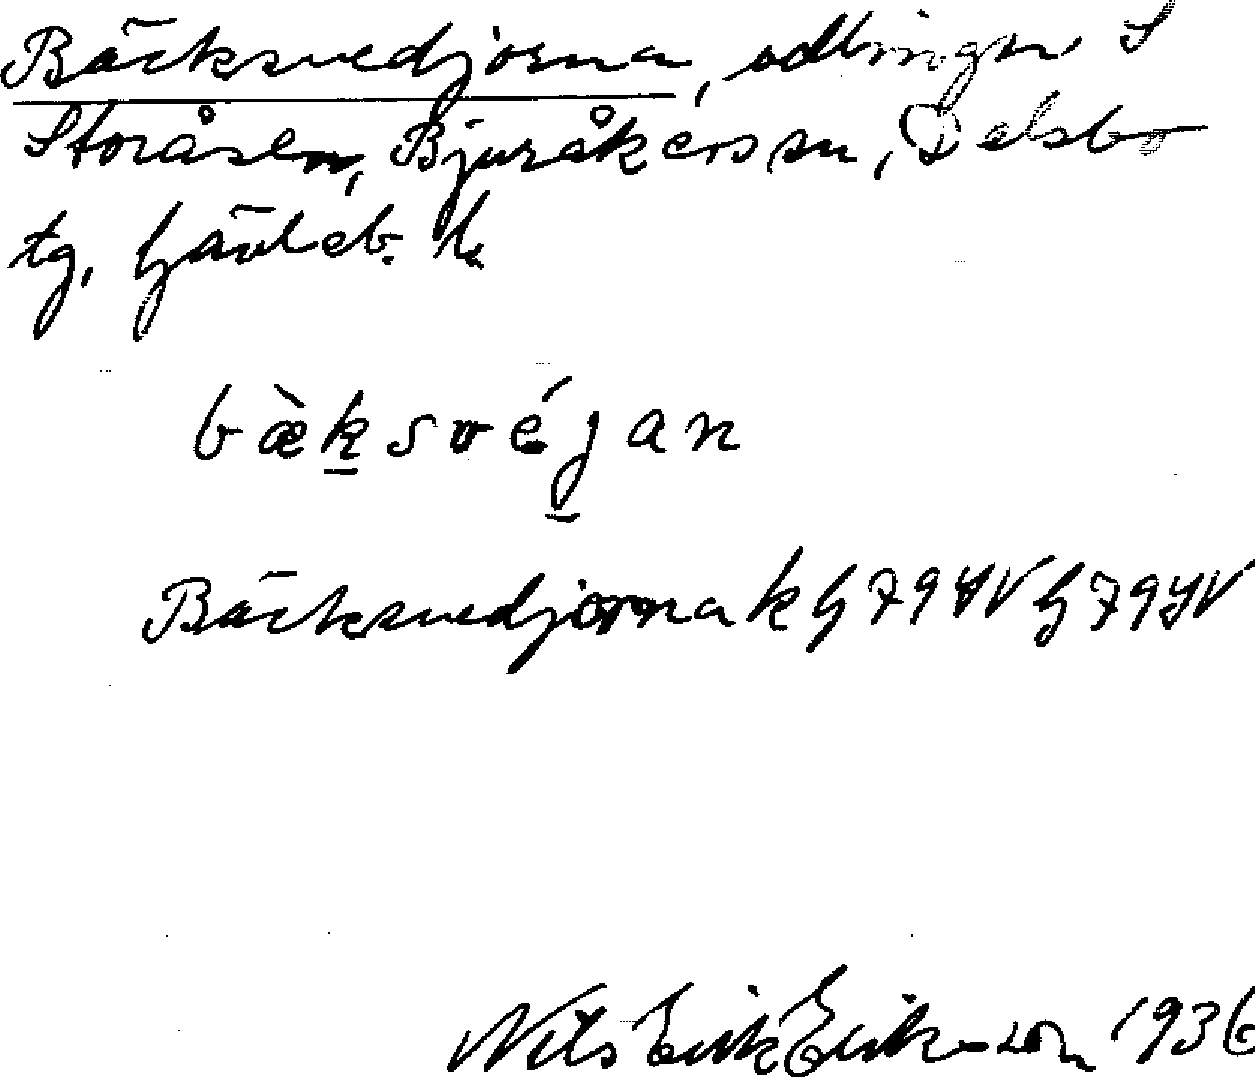 Bäcksvedjorna, odlingar S
Storåsen, Bjuråkers sn, Delsbo
tg, Gävleb. l.
bæ̀k̠své̠j̠an
Bäcksvedjorna k G 79 SV G 79 SV
Nils Erik Eriksson 1936